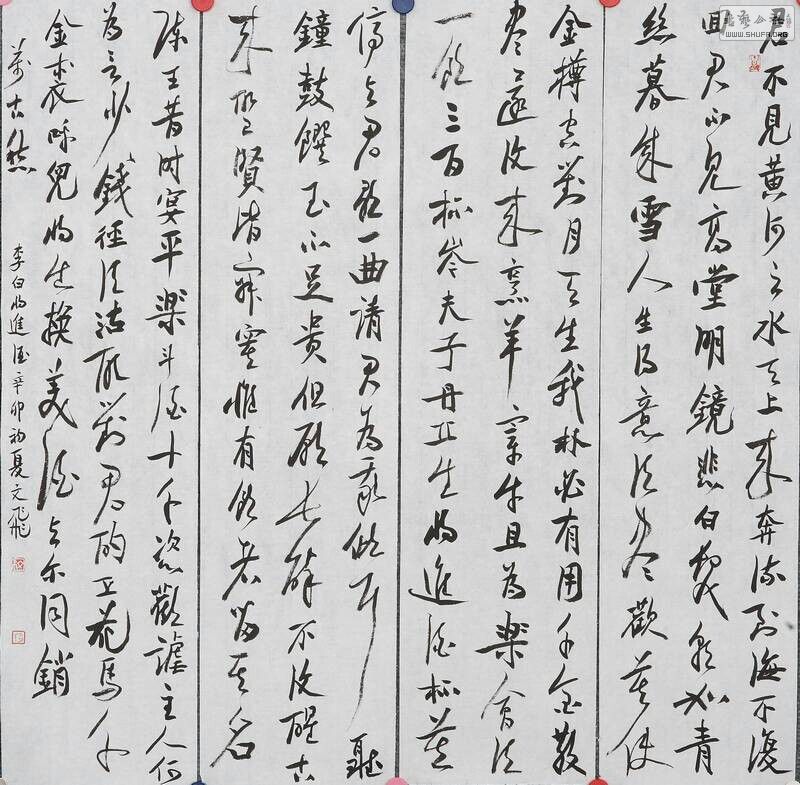 君不見黄河之水天上来奔流到海不復
回君不見高堂明鏡悲白髮朝如青
絲暮成雪人生得意須盡歡莫使
金樽空對月天生我材必有用千金散
盡還復来烹羊宰牛且為樂會須
一飲三百杯岑夫子丹丘生將進酒杯莫
停與君歌一曲請君為我傾耳聽
鐘鼓饌玉不足貴但願長醉不復醒古
来聖賢皆寂寞惟有飲者留其名
陳王昔時宴平樂斗酒十千恣歡謔主人何
為言少錢徑須沽取對君酌五花馬千
金裘呼兒將出換美酒與爾同銷
萬古愁
李白將進酒辛卯初夏文飛
WWW.SHUFA.ORG